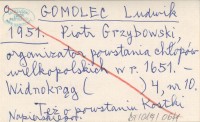 GOMOLEC Ludwik
1951. Piotr Grzybowski,
organizator powstania chłopów
wielkopolskich w r. 1651. -
Widnokrąg ( ) 4, nr 10.
Też o powstaniu Kostki
Napierskiego.